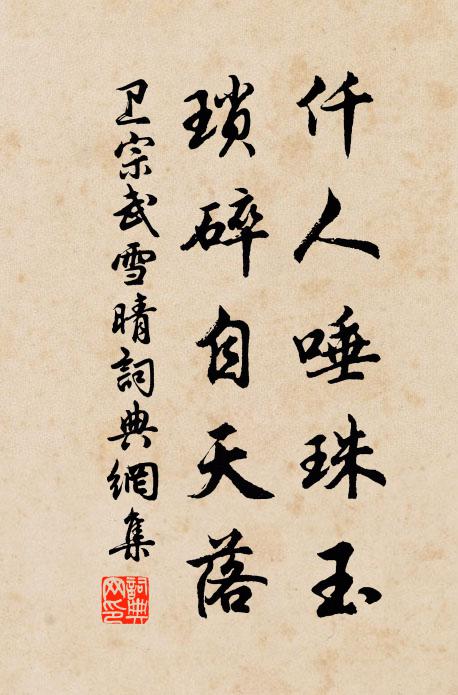 仟人唾珠玉
瑣碎自天落
卫宗武雪晴詞典網集
詞典網印